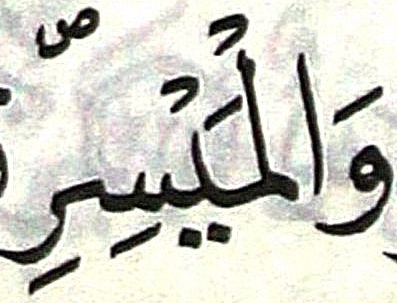 وَالْمَيْسِرِۖ